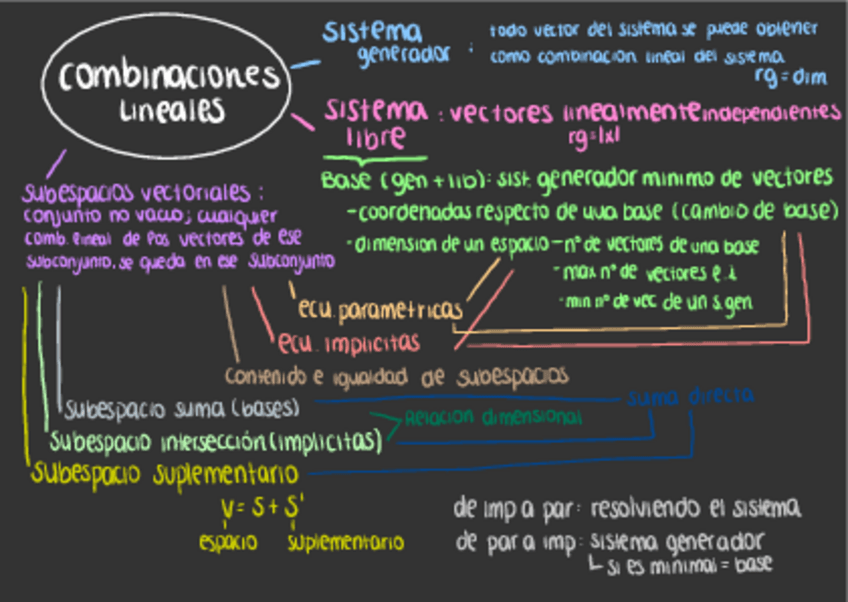 combinaciones
lineales
sistema
generador :
todo vector del sistema se puede obtener
como combinacion lineal del sistema
rg = dim
sistema
libre
: vectores linealmente independientes
rg = |x|
Base (gen + lib): sist. generador minimo de vectores
- coordenadas respecto de una base (cambio de base)
- dimension de un espacio - nº de vectores de una base
- max nº de vectores e.i
- min nº de vec de un s.gen
subespacios vectoriales :
conjunto no vacio; cualquier
comb. lineal de los vectores de ese
subconjunto, se queda en ese subconjunto
ecu. parametricas
ecu. implicitas
contenido e igualdad de subespacios
subespacio suma (bases)
suma directa
Relacion dimensional
subespacio intersección (implicitas)
subespacio suplementario
V = S + S'
espacio suplementario
de imp a par: resolviendo el sistema
de par a imp: sistema generador
si es minimal = base